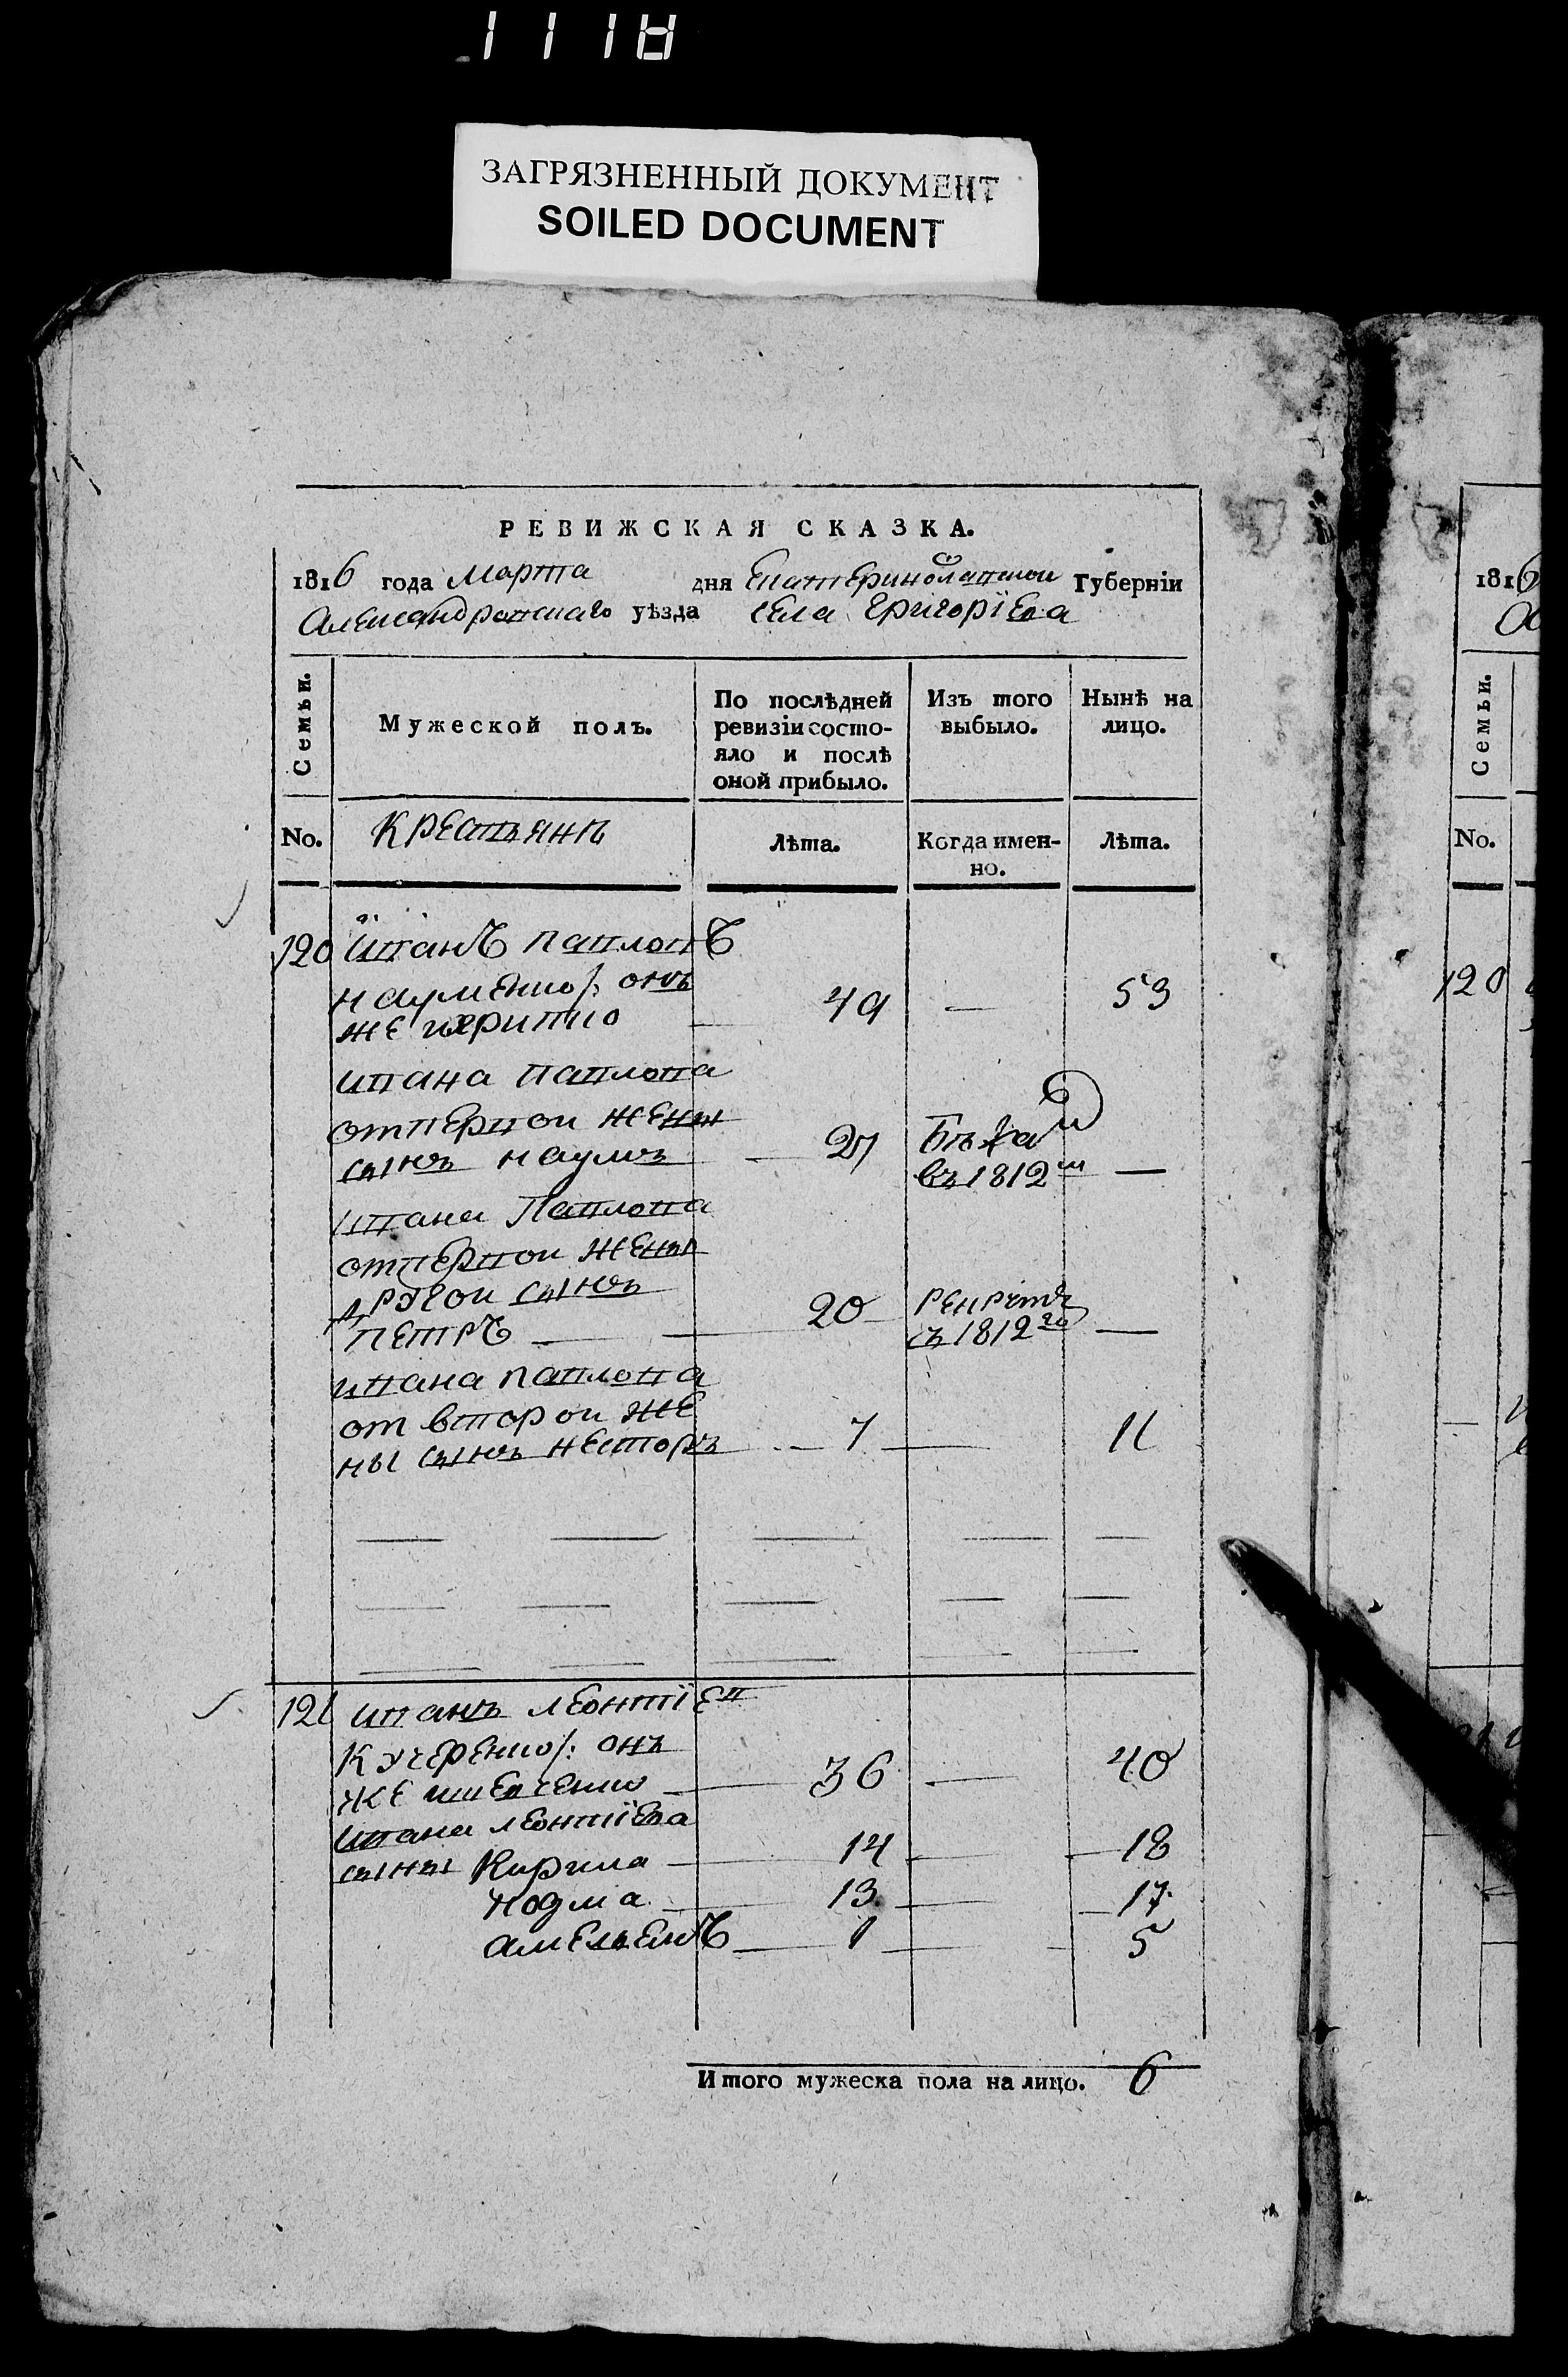 1118
ЗАГРЯЗНЕННЫЙ ДОКУМЕНТ
SOILED DOCUMENT
РЕВИЖСКАЯ СКАЗКА.
1816 года Марта дня Екатеринославской Губерніи
Александровскаго уѣзда села Григорїева
Семьи.
Мужеской полъ.
По послѣдней ревизіи состо-
яло и послѣ
оной прибыло.
Изъ того выбыло.
Нынѣ на лицо.
No.
Крестьянъ
Лѣта.
Когда имен-
но.
Лѣта.
120 Иванъ Павловъ
Науменко /: онъ
же 49 — 53
Ивана Павлова
от первои жены
сынъ Наумъ 27 Бѣжал въ 1812м —
Ивана Павлова
от первои жены
другои сынъ
Петръ 20 Рекрутъ съ 1812го —
Ивана Павлова
от второи же
ны сынъ Несторъ 7 — 11
121 Иванъ Леонтїев
Кучеренко /: онъ
же Шевченко 36 — 40
Ивана Леонтїева
сыны Кирила 14 — 18
Козма 13 — 17
Амельянъ 1 — 5
Итого мужеска пола на лицо. 6
1816
Семьи.
No.
120